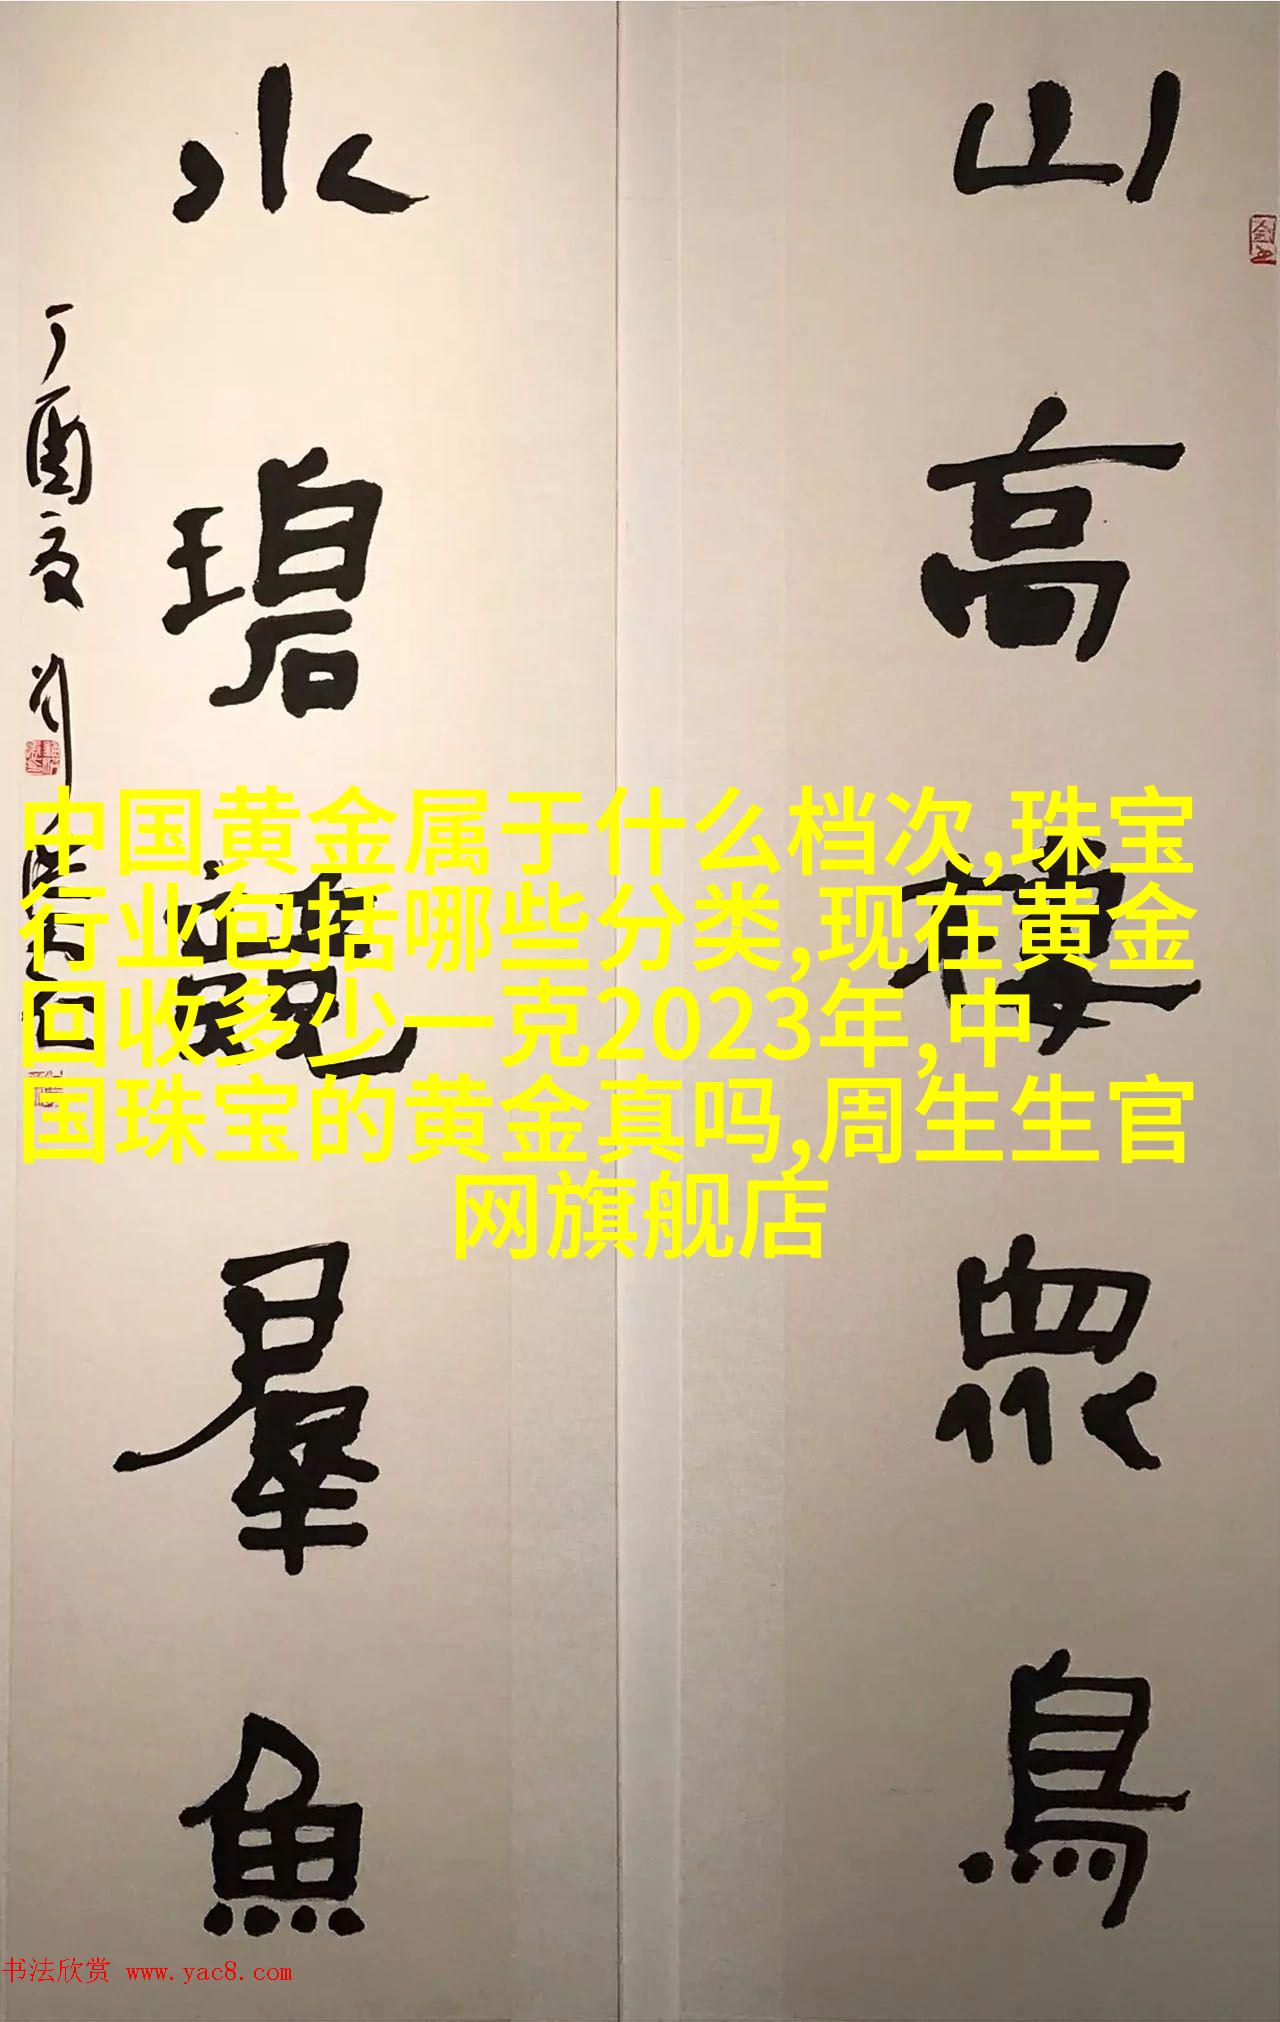 山高樓眾鳥
水碧觀群魚
丁酉夏
中国黄金属于什么档次,珠宝
行业包括哪些分类,现在黄金
回收多少一克2023年,中
国珠宝的黄金真吗,周生生官
网旗舰店
书法欣赏 www.yac8.com